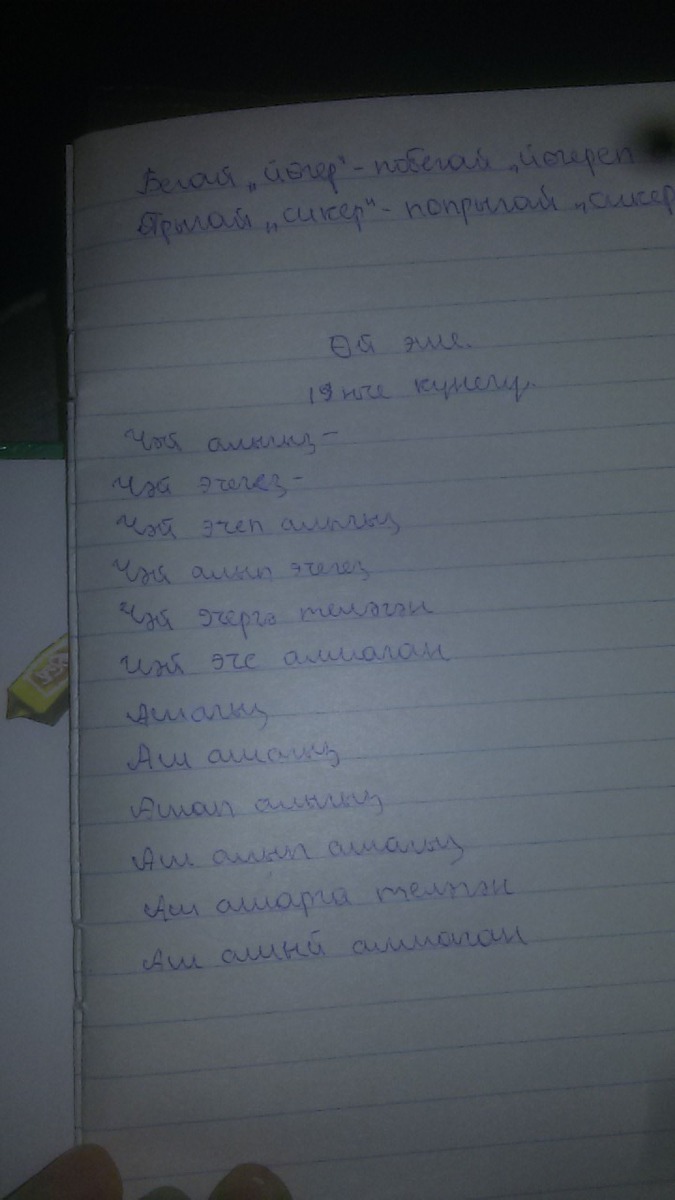 Бегай „йөгер" - побегай „йөгереп
Прыгай „сикер" - попрыгай „сикер
Өй эше.
19 нче күнегү.
Чәй алыгыз -
Чәй эчегез -
Чәй эчеп алыгыз
Чәй алып эчегез
Чәй эчергә теләгән
Чәй эче алмаган
Ашагыз
Аш ашагыз
Ашап алыгыз
Аш алып ашагыз
Аш ашарга теләгән
Аш ашый алмаган